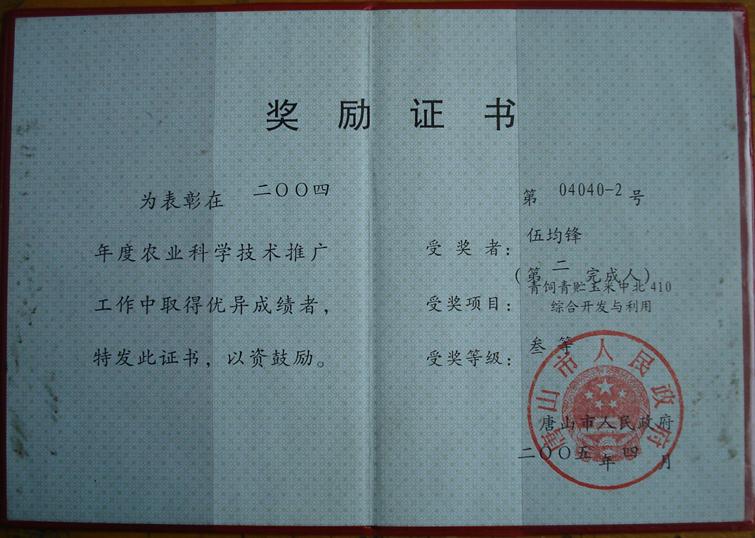 奖励证书
为表彰在 二〇〇四
年度农业科学技术推广
工作中取得优异成绩者，
特发此证书，以资鼓励。
第 04040-2 号
受奖者：伍均锋
（第 二 完成人）
受奖项目：青饲青贮玉米中北410
综合开发与利用
受奖等级：叁等
唐山市人民政府
唐山市人民政府
二〇〇五年四月